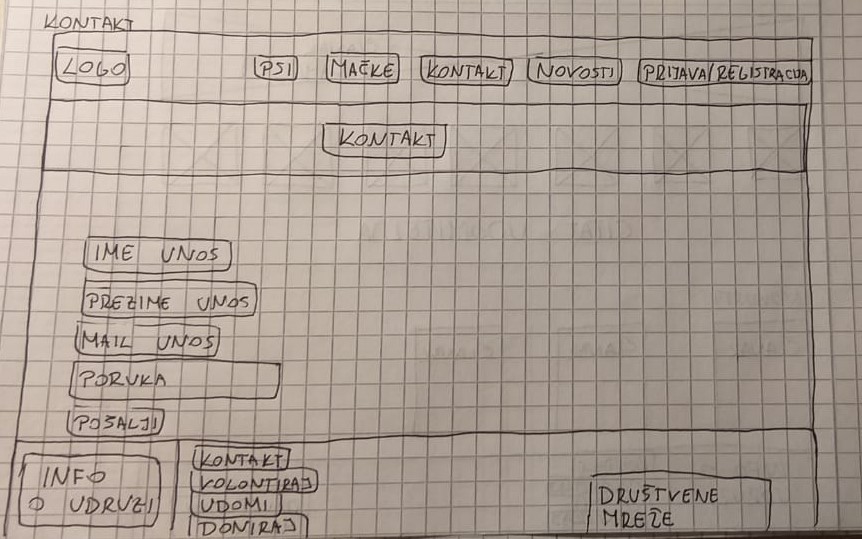 KONTAKT
LOGO PSI MAČKE KONTAKT NOVOSTI PRIJAVA/REGISTRACIJA
KONTAKT
IME UNOS
PREZIME UNOS
MAIL UNOS
PORUKA
POŠALJI
INFO
O UDRUZI
KONTAKT
VOLONTIRAJ
UDOMI
DONIRAJ
DRUŠTVENE
MREŽE